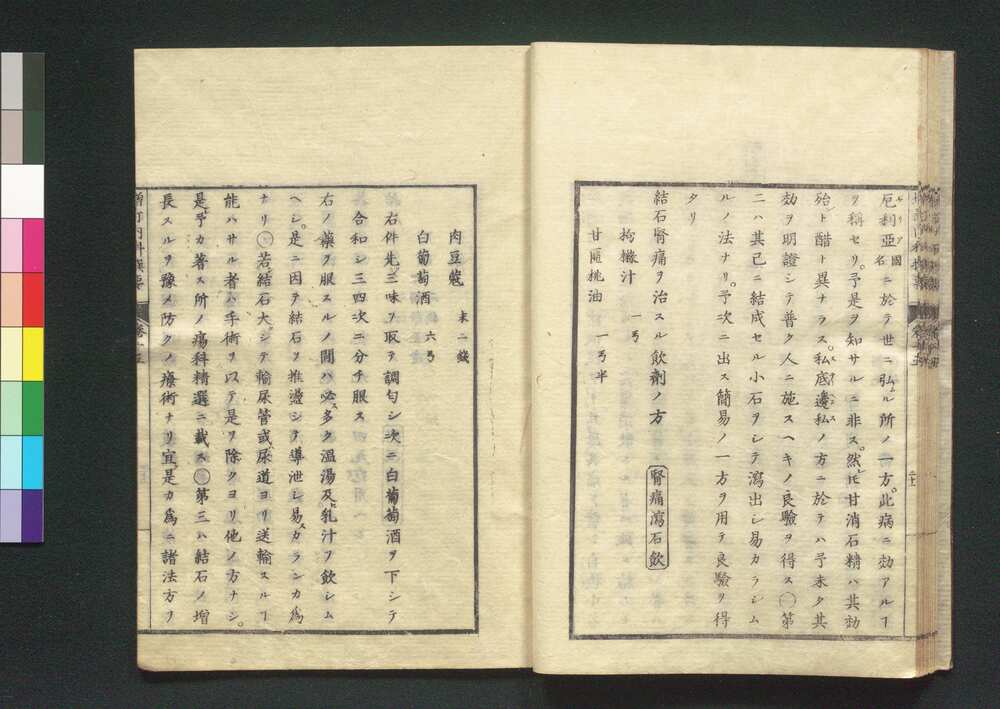 厄利亜國名ニ於テ世ニ弘ムル所ノ一方。此病ニ効アルヿ
ヲ稱セリ。予是ヲ知サルニ非ス。然𪜈甘消石精ハ其効
殆ト醋ト異ナラス。私底邊私ノ方ニ於テハ予未タ其
効ヲ明證シテ普ク人ニ施スヘキノ良驗ヲ得ス○第
二ハ其已ニ結成セル小石ヲシテ瀉出シ易カラシム
ルノ法ナリ。予次ニ出ス簡易ノ一方ヲ用テ良驗ヲ得
タリ
結石腎痛ヲ治スル飲劑ノ方 腎痛瀉石飲
枸櫞汁 一弓
甘匾桃油 一弓半
肉豆蔻 末二錢
白葡萄酒 六弓
右件先ツ三味ヲ取テ調匀シ次ニ白葡萄酒ヲ下シテ
合和シ三四次ニ分チ服ス
右ノ藥ヲ服スルノ間ハ必ス多ク溫湯及ヒ乳汁ヲ飲シム
ヘシ。是ニ因テ結石ヲ推盪シテ導泄シ易カランカ為
ナリ○若シ結石大ニシテ輸尿管或ハ尿道ヨリ送輸スルヿ
能ハサル者ハ手術ヲ以テ是ヲ除クヨリ他ノ方ナシ。
是予カ著ス所ノ瘍科精選ニ載ス○第三ハ結石ノ増
長スルヲ豫メ防クノ療術ナリ宜ク是カ為ニ諸法方ヲ